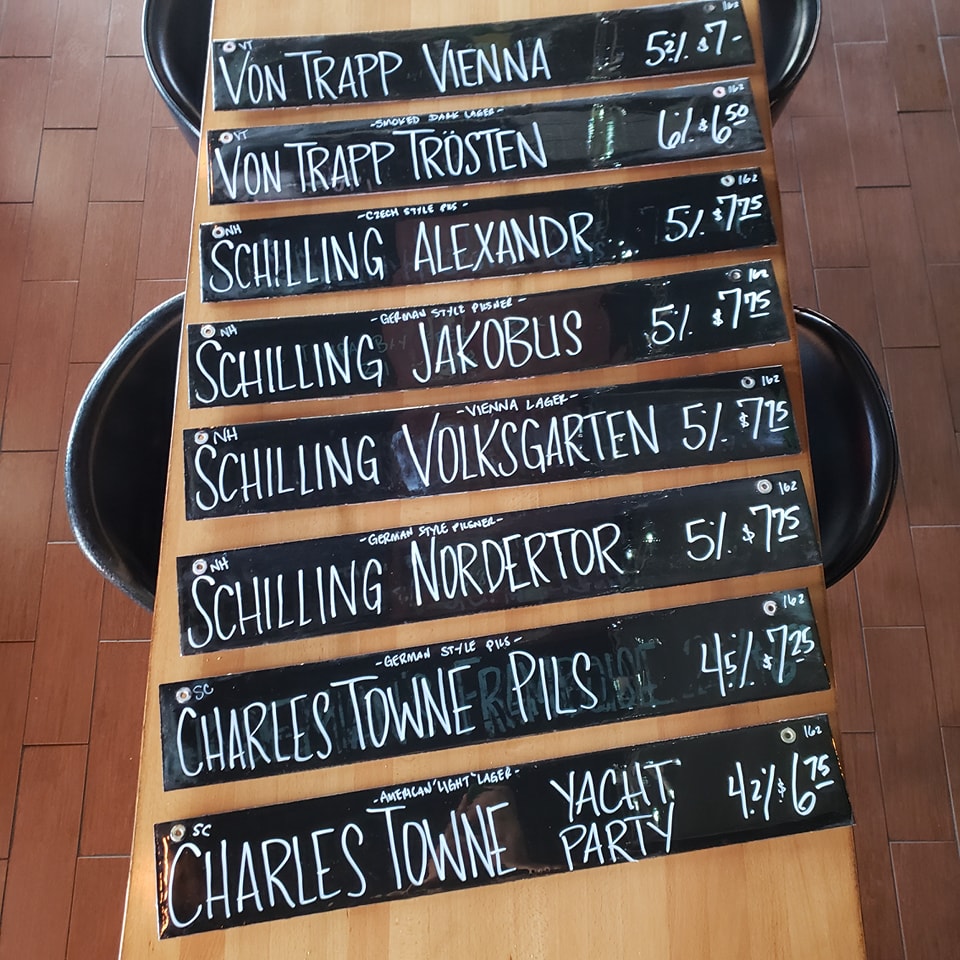 VT 162
VON TRAPP VIENNA 5.2% $7-
VT -SMOKED DARK LAGER- 162
VON TRAPP TRÖSTEN 6% $6.50
NH -CZECH STYLE PILS- 162
SCHILLING ALEXANDR.. 5% $7.75
NH -GERMAN STYLE PILSNER- 162
SCHILLING JAKOBUS 5% $7.75
NH -VIENNA LAGER- 162
SCHILLING VOLKSGARTEN 5% $7.75
NH -GERMAN STYLE PILSNER- 162
SCHILLING NORDERTOR 5% $7.75
SC -GERMAN STYLE PILS- 162
CHARLES TOWNE PILS 4.5% $7.25
SC -AMERICAN "LIGHT" LAGER- 162
CHARLES TOWNE YACHT PARTY 4.2% $6.75